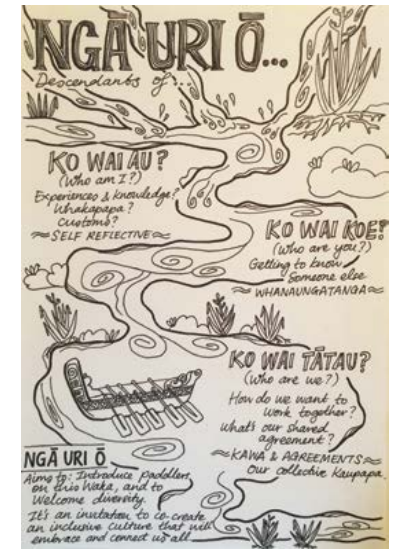 NGĀ URI Ō...
Descendants of...
KO WAI AU?
(Who am I?)
Experiences & knowledge?
Whakapapa?
Customs?
SELF REFLECTIVE
KO WAI KOE?
(Who are you?)
Getting to know
someone else
WHANAUNGATANGA
KO WAI TĀTAU?
(Who are we?)
How do we want to
work together?
What's our shared
agreement?
KAWA & AGREEMENTS
Our collective Kaupapa
NGĀ URI Ō
Aims to: Introduce paddlers
on this Waka, and to
Welcome diversity.
It's an invitation to co-create
an inclusive culture that will
embrace and connect us all